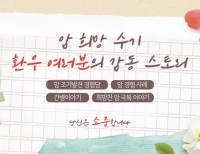 암 희망 수기
환우 여러분의 감동 스토리
암 조기발견 경험담 암 경험 사례
간병이야기 희망찬 암 극복 이야기
당신은 소중합니다